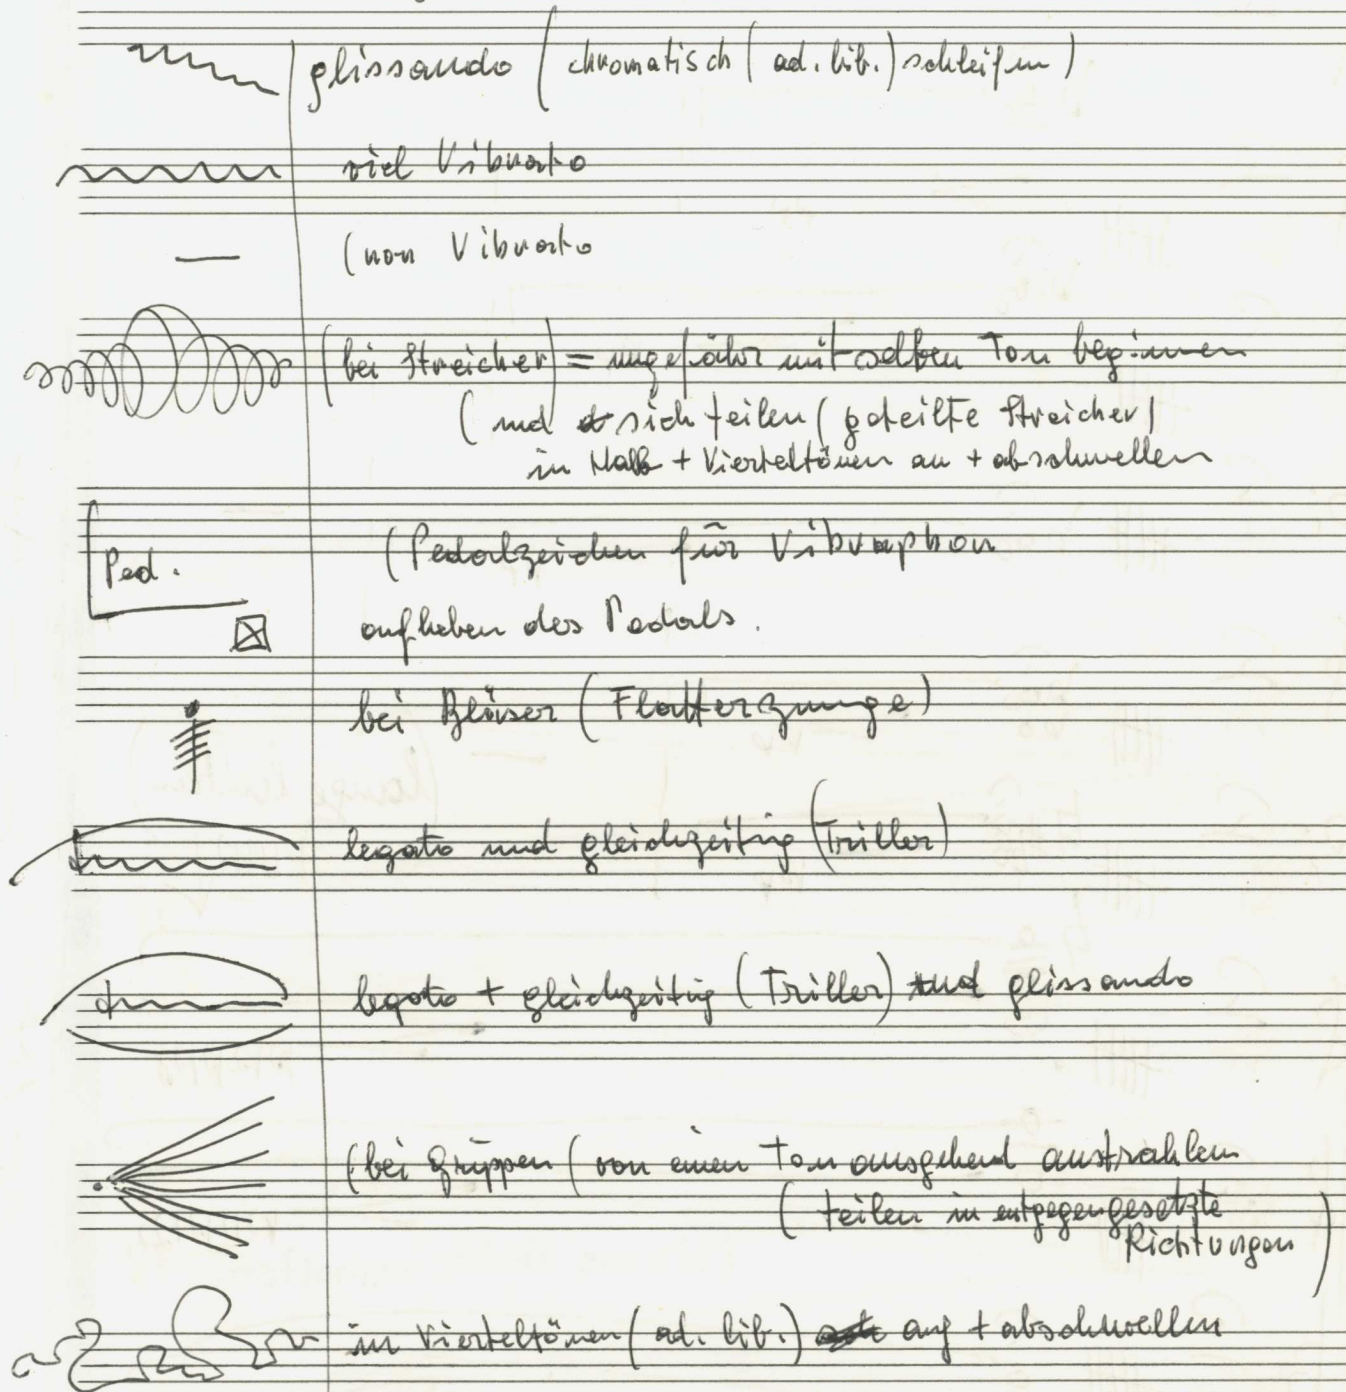 glissando ( chromatisch ( ad. lib.) schleifen )
viel Vibrato
( non Vibrato
( bei Streicher ) = ungefähr mit selben Ton beginnen
( und sich teilen ( geteilte Streicher )
in Halb + Vierteltönen an + abschwellen
Ped.
( Pedalzeichen für Vibraphon
aufheben des Pedals.
bei Bläser ( Flatterzunge )
legato und gleichzeitig ( Triller )
legato + gleichzeitig ( Triller ) und glissando
( bei Gruppen ( von einen Ton ausgehend austrahlen
( teilen in entgegengesetzte
Richtungen )
in Vierteltönen ( ad. lib. ) auf + abschwellen